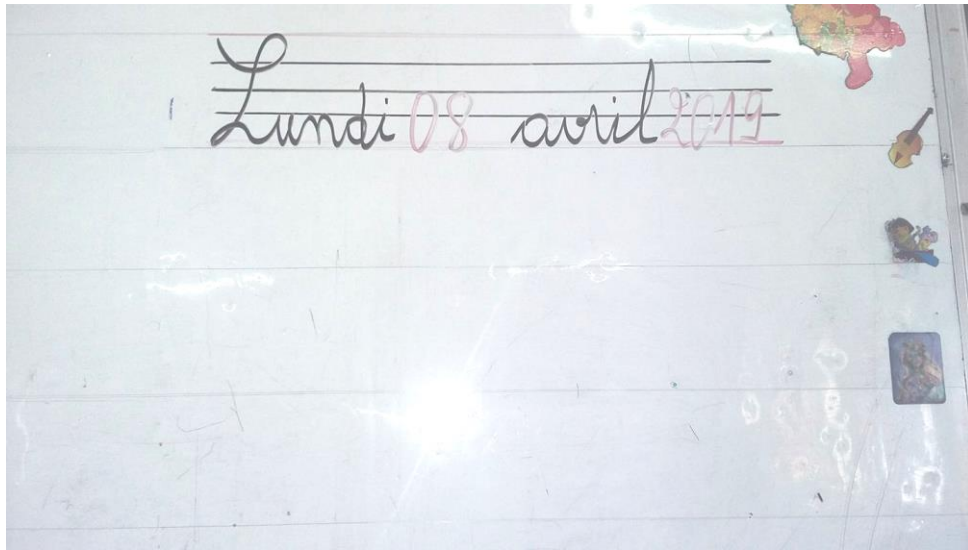 Lundi 08 avril 2019